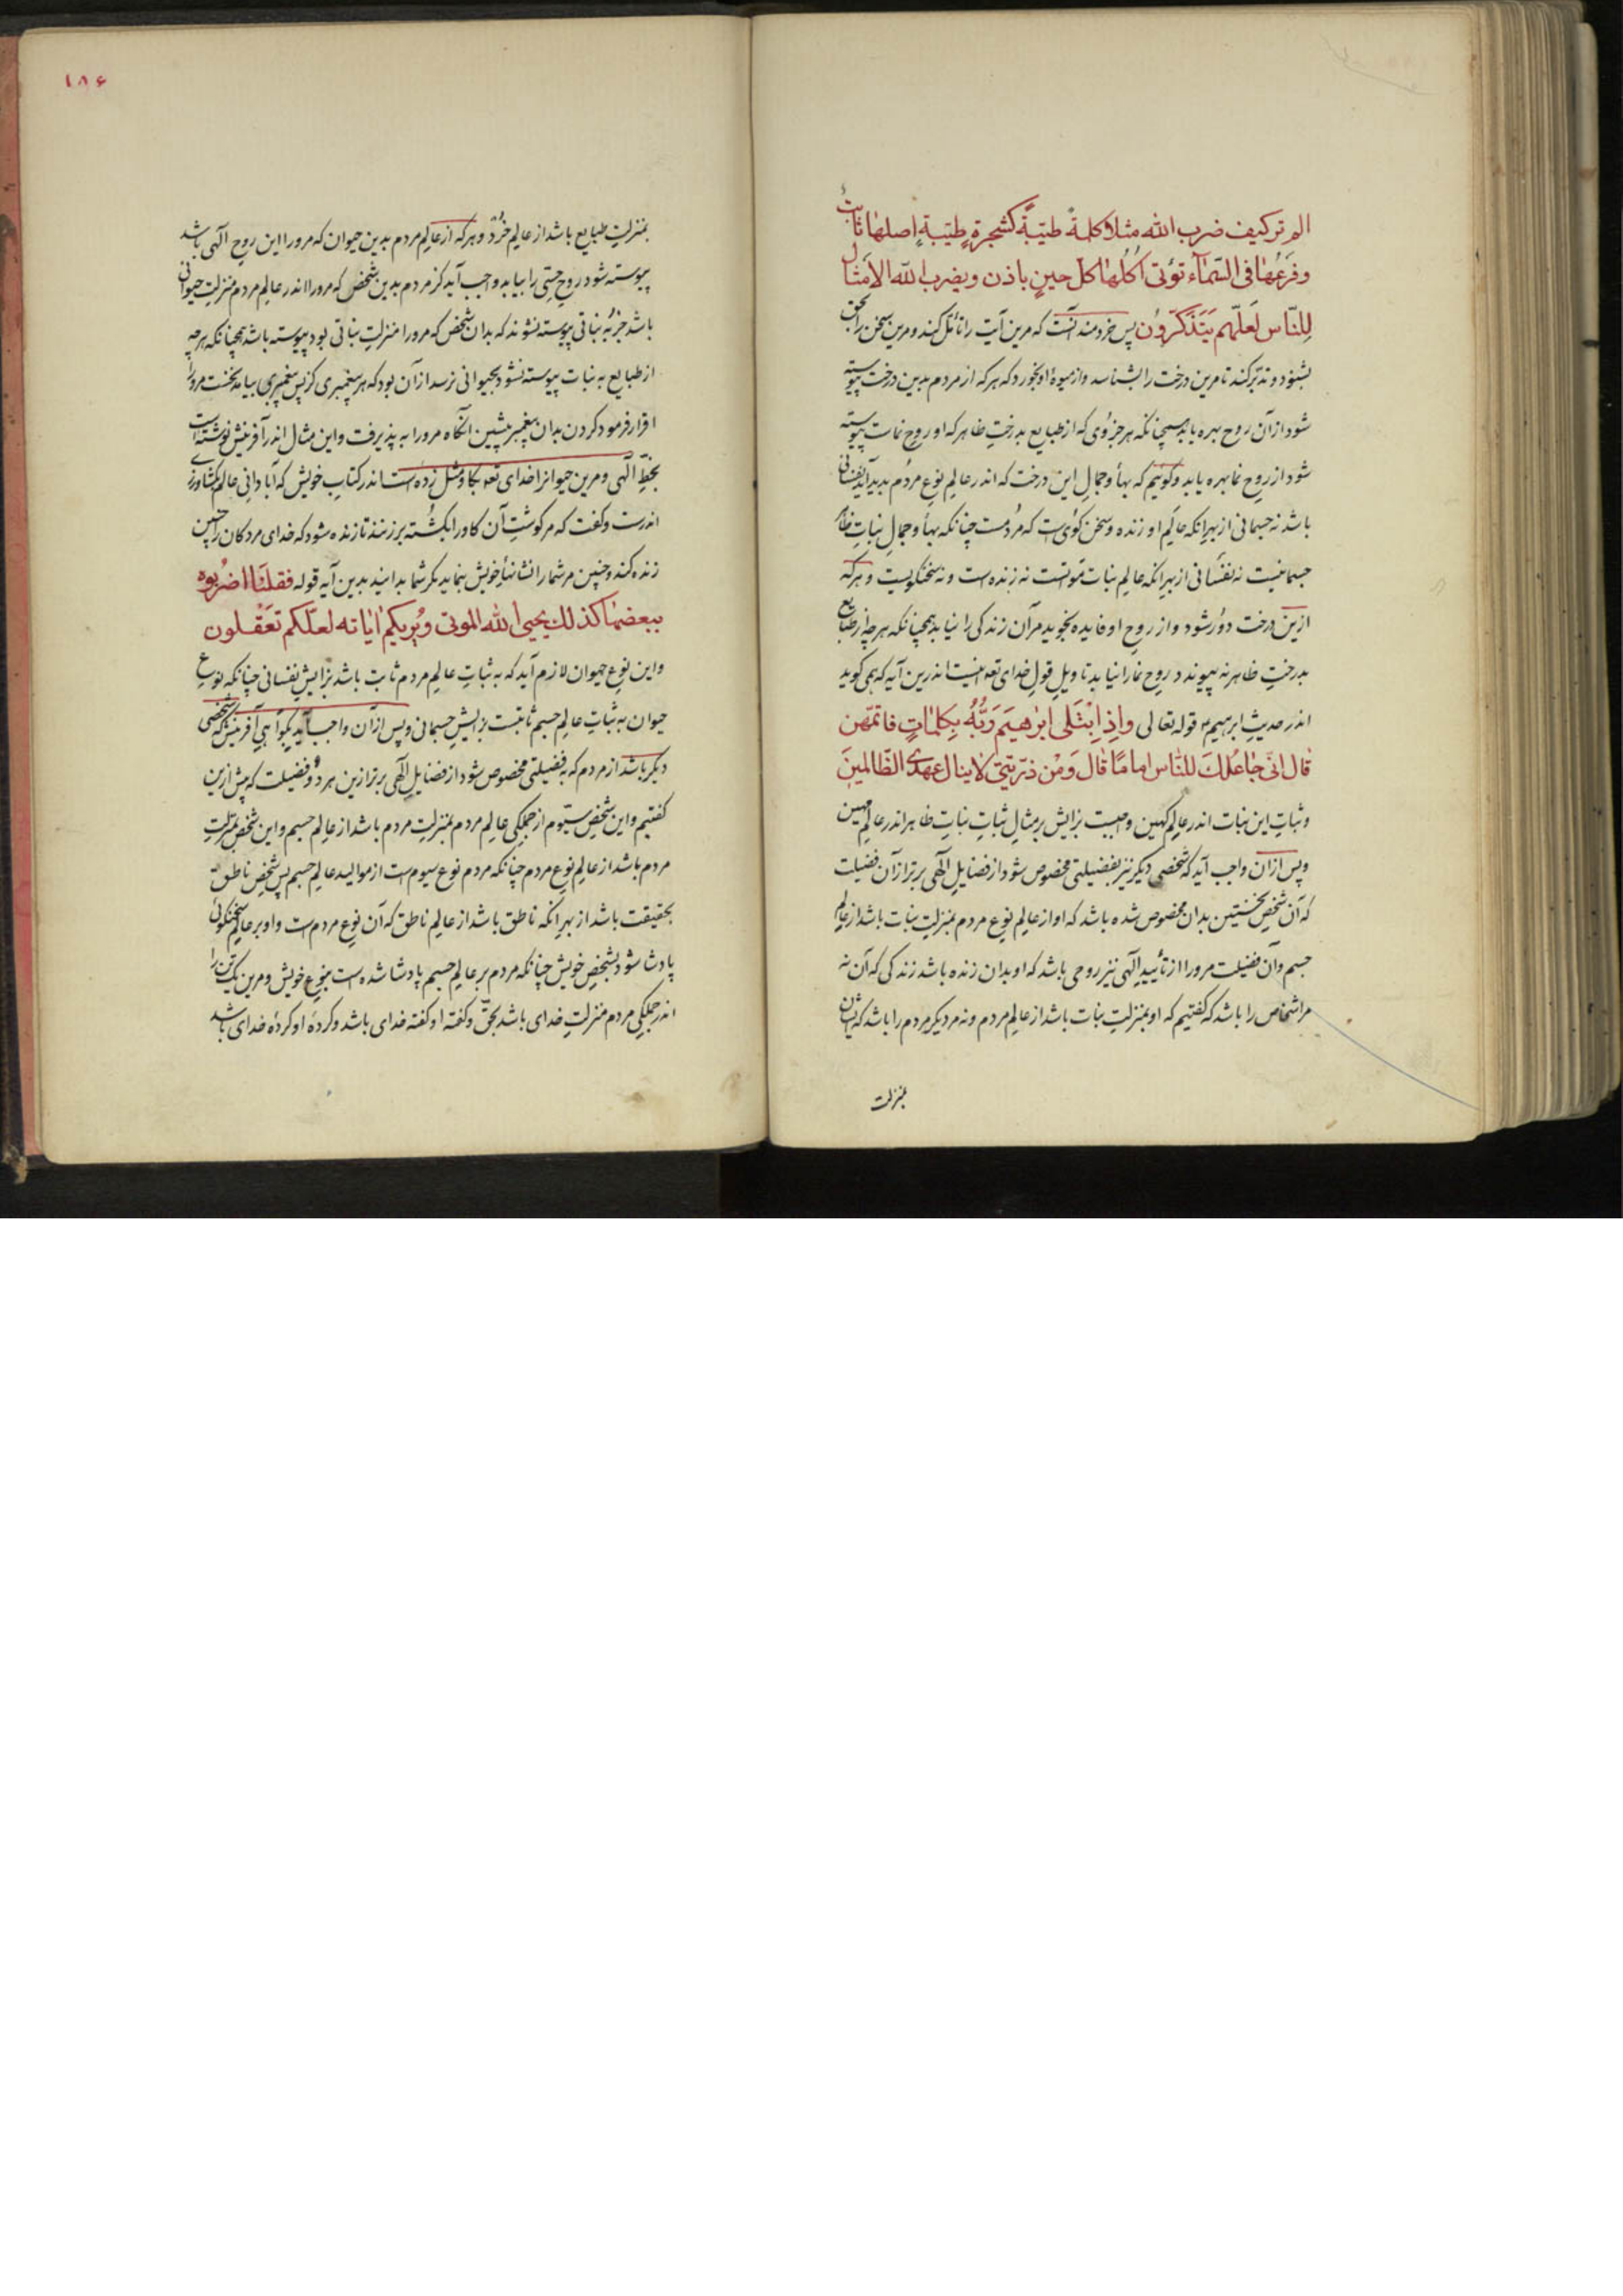 الم تر کیف ضرب الله مثلا کلمةً طیّبةً کشجرةٍ طیّبةٍ اصلها ثابتٌ
وفرعُها فی السّمآء تؤتی اُکُلُها کلّ حینٍ باذن ویضرب اللّه الاَمثال
لِلنّاس لَعلّهم یَتَذَکّروُن پس خردمند آنست که مرین آیت را تأمّل کند و مرین سخن را بحق
بشنود و تدبّر کند تا مرین درخت را بشناسد و از میوهٔ او بخورد که هر که از مردم بدین درخت پیوسته
شود از آن روح بهره یابد همچنانکه هر جزوی که از طبایع بدرختِ ظاهر که او روح نماست پیوسته
شود از روحِ نما بهره یابد و گوئیم که بهأ و جمالِ این درخت که اندر عالمِ نوعِ مردُم پدید آید نفسانی
باشد نه جسمانی از بهرِ آنکه عالَمِ او زنده و سخن گوی است که مردُمست چنانکه بهأ و جمالِ نباتِ ظاهر
جسمانیست نه نفسانی از بهرِ آنکه عالمِ نبات مَواتست نه زنده است و نه سخنگویست و هر که
ازین درخت دوُر شود و از روحِ او فایده نجوید مر آن زندگی را نیابد همچنانکه هر چه از طبایع
بدرختِ ظاهر نپیوندد روح نما را نیابد تاویلِ قولِ خدای تعه اینست اندرین آیه که همی گوید
اندر حدیثِ ابرهیم ع قوله تعالی واِذِ ابْتَلی ابرٰهیَم رَبُّهُ بِکلماتٍ فاتمّهن
قال انّی جاعُلکَ للنّاس اماماً قال وَمْن ذرّیتی لاینال عهدی الظّالمینَ
و ثباتِ این نبات اندر عالمِ کهین واجبست بزایش بر مثالِ ثباتِ نباتِ ظاهر اندر عالمِ مهین
و پس از آن واجب آید که شخصی دیگر نیز بفضیلتی مخصوص شود از فضایلِ آلهی برتر از آن فضیلت
که آن شخصِ نخستین بدان مخصوص شده باشد که او از عالمِ نوعِ مردم بمنزلتِ نبات باشد از عالمِ
جسم و آن فضیلت مرورا از تأییدِ آلهی نیز روحی باشد که او بدان زنده باشد زندگی که آن نه
مر اشخاص را باشد که گفتیم که او بمنزلتِ نبات باشد از عالمِ مردم و نه مر دیگر مردم را باشد که ایشان
بمنزلت
۱۸۶
بمنزلتِ طبایع باشد از عالمِ خرُد و هر که از عالمِ مردم بدین حیوان که مرورا این روحِ آلهی باشد
پیوسته شود روحِ حِسّی را بیابد و واجب آید کز مردم بدین شخص که مرورا اندر عالمِ مردم منزلتِ حیوانی
باشد جز به نباتی پیوسته نشوند که بدان شخص که مرورا منزلتِ نباتی بود پیوسته باشد همچنانکه هر چه
از طبایع به نبات پیوسته نشود بحیوانی نرسد از آن بود که هر پیغمبری کز پسِ پیغمبری بیامد نخست مرورا
اقرار فرمود کردن بدان پیغمبر پیشین آنگاه مرورا به پذیرفت و این مثال اندر آفرینش نوشته است
بخطِّ آلهی و مرین حیوانرا خدای تعه بگاو مثل زده است اندر کتابِ خویش که آبادانی عالم بکشاورزی
اندرست و گفت که مر گوشتِ آن گاو را بکشُته بر زنند تا زنده شود که خدای مردگان را چنین
زنده کند و چنین مر شما را نشانهأ خویش بنماید مگر شما بدانید بدین آیه قوله فقلنَا اضرُبوه
ببعضهاکذلك یحیی الله الموتی ویُرِیکم اٰیاته لعلّکم تعَقلون
و این نوع حیوان لازم آید که به ثباتِ عالمِ مردم ثابت باشد بزایشِ نفسانی چنانکه نوعِ
حیوان به ثباتِ عالمِ جسم ثابتست بزایشِ جسمانی و پس از آن واجب آید بگواهی آفرینش که شخصی
دیگر باشد از مردم که به فضیلتی مخصوص شود از فضایلِ آلهی برتر ازین هر دو فضیلت که پیش ازین
گفتیم و این شخصِ سیّوم از جملگیِ عالمِ مردم بمنزلتِ مردم باشد از عالمِ جسم و این شخص بمنزلتِ
مردم باشد از عالمِ نوعِ مردم چنانکه مردم نوعِ سیوم است از موالیدِ عالمِ جسم پس شخصِ ناطق
بحقیقت باشد از بهرِ آنکه ناطق باشد از عالمِ ناطق که آن نوعِ مردم است و او بر عالمِ سخنگوئی
پادشا شود بشخصِ خویش چنانکه مردم بر عالمِ جسم پادشا شده است بنوعِ خویش و مرین یک تن را
اندر جملگیِ مردم منزلتِ خدای باشد بحقّ و گفته او گفته خدای باشد و کردهٔ او کردهٔ خدای باشد